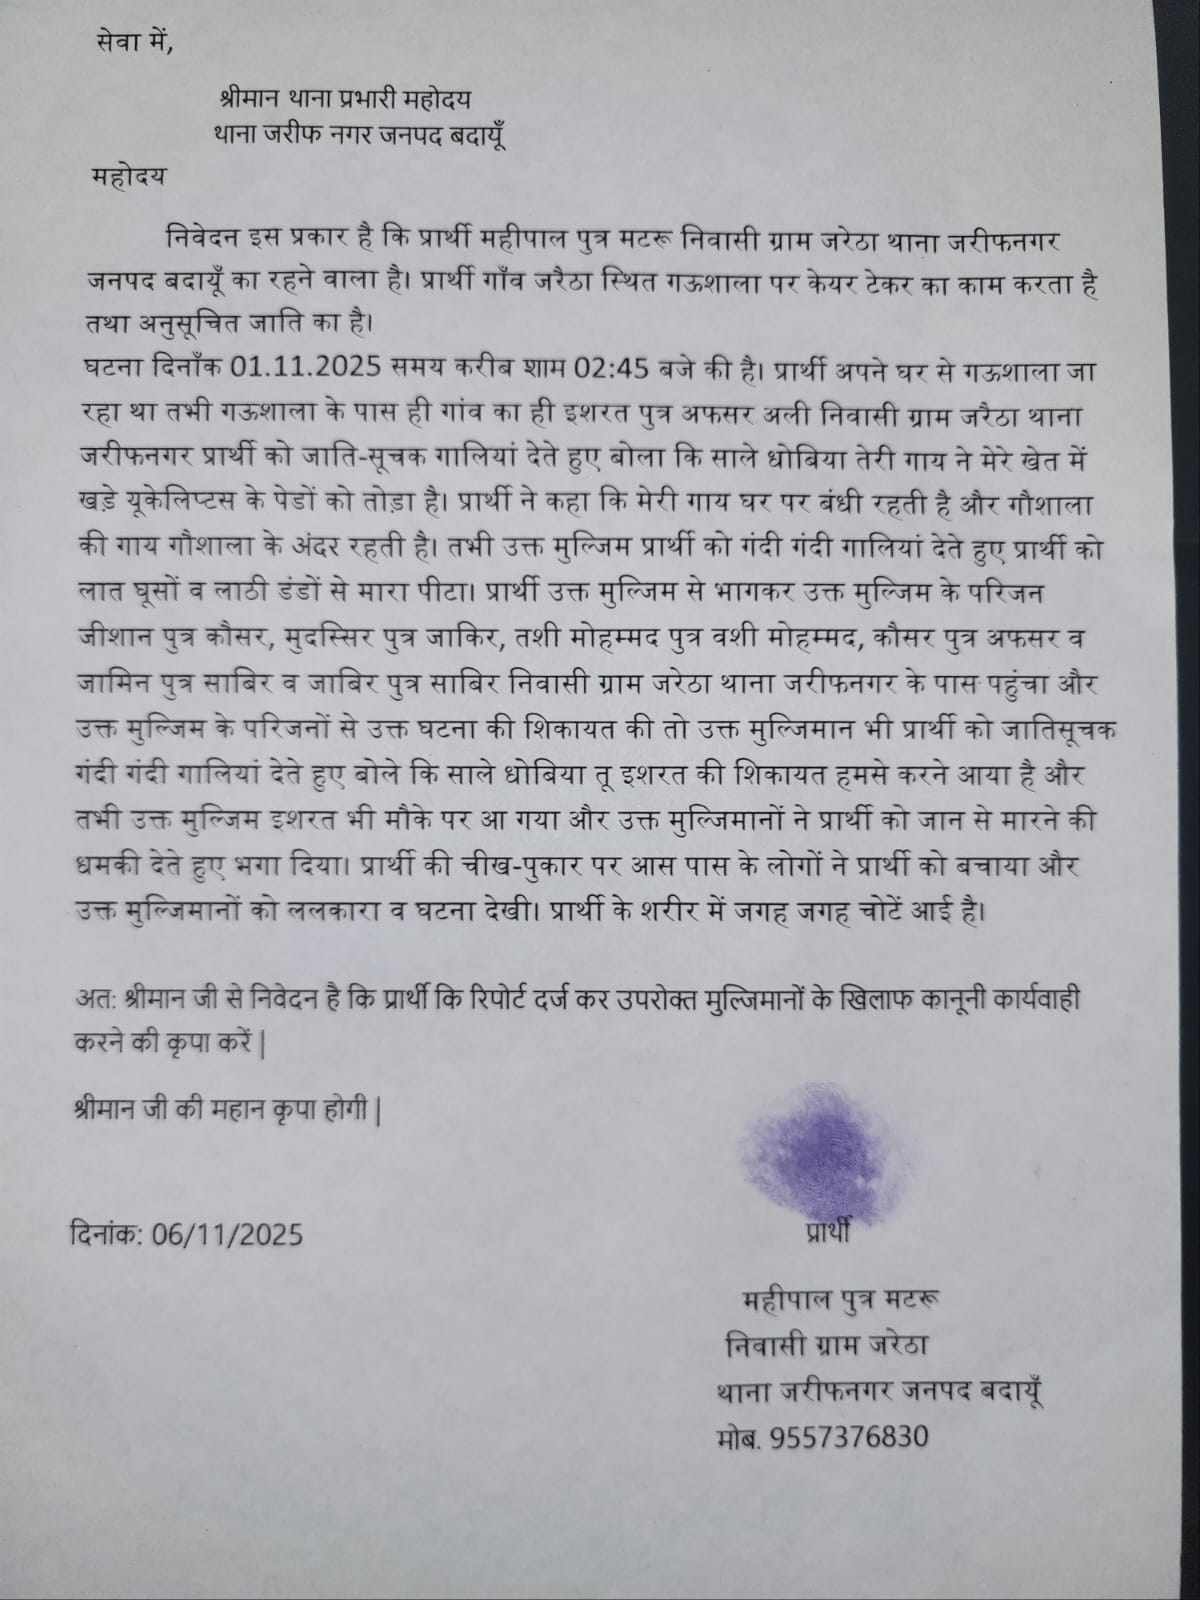 सेवा में,
श्रीमान थाना प्रभारी महोदय
थाना जरीफ नगर जनपद बदायूँ
महोदय
निवेदन इस प्रकार है कि प्रार्थी महीपाल पुत्र मटरू निवासी ग्राम जरेठा थाना जरीफनगर
जनपद बदायूँ का रहने वाला है। प्रार्थी गाँव जरैठा स्थित गऊशाला पर केयर टेकर का काम करता है
तथा अनुसूचित जाति का है।
घटना दिनाँक 01.11.2025 समय करीब शाम 02:45 बजे की है। प्रार्थी अपने घर से गऊशाला जा
रहा था तभी गऊशाला के पास ही गांव का ही इशरत पुत्र अफसर अली निवासी ग्राम जरैठा थाना
जरीफनगर प्रार्थी को जाति-सूचक गालियां देते हुए बोला कि साले धोबिया तेरी गाय ने मेरे खेत में
खड़े यूकेलिप्टस के पेडों को तोड़ा है। प्रार्थी ने कहा कि मेरी गाय घर पर बंधी रहती है और गौशाला
की गाय गौशाला के अंदर रहती है। तभी उक्त मुल्जिम प्रार्थी को गंदी गंदी गालियां देते हुए प्रार्थी को
लात घूसों व लाठी डंडों से मारा पीटा। प्रार्थी उक्त मुल्जिम से भागकर उक्त मुल्जिम के परिजन
जीशान पुत्र कौसर, मुदस्सिर पुत्र जाकिर, तशी मोहम्मद पुत्र वशी मोहम्मद, कौसर पुत्र अफसर व
जामिन पुत्र साबिर व जाबिर पुत्र साबिर निवासी ग्राम जरेठा थाना जरीफनगर के पास पहुंचा और
उक्त मुल्जिम के परिजनों से उक्त घटना की शिकायत की तो उक्त मुल्जिमान भी प्रार्थी को जातिसूचक
गंदी गंदी गालियां देते हुए बोले कि साले धोबिया तू इशरत की शिकायत हमसे करने आया है और
तभी उक्त मुल्जिम इशरत भी मौके पर आ गया और उक्त मुल्जिमानों ने प्रार्थी को जान से मारने की
धमकी देते हुए भगा दिया। प्रार्थी की चीख-पुकार पर आस पास के लोगों ने प्रार्थी को बचाया और
उक्त मुल्जिमानों को ललकारा व घटना देखी। प्रार्थी के शरीर में जगह जगह चोटें आई है।
अत: श्रीमान जी से निवेदन है कि प्रार्थी कि रिपोर्ट दर्ज कर उपरोक्त मुल्जिमानों के खिलाफ कानूनी कार्यवाही
करने की कृपा करें |
श्रीमान जी की महान कृपा होगी |
दिनांक: 06/11/2025
प्रार्थी
महीपाल पुत्र मटरू
निवासी ग्राम जरेठा
थाना जरीफनगर जनपद बदायूँ
मोब. 9557376830